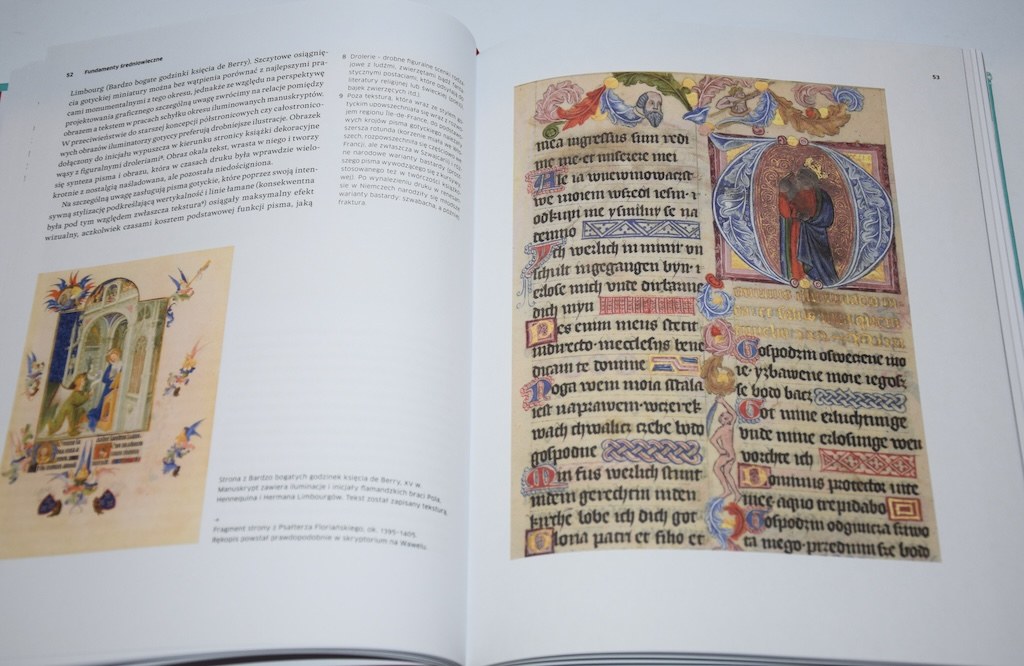 52 Fundamenty średniowieczne
Limbourg (Bardzo bogate godzinki księcia de Berry). Szczytowe osiągnię-
cia gotyckiej miniatury można bez wątpienia porównać z najlepszymi pra-
cami monumentalnymi z tego okresu, jednakże ze względu na perspektywę
projektowania graficznego szczególną uwagę zwróćmy na relacje pomiędzy
obrazem a tekstem w pracach schyłku okresu iluminowanych manuskryptów.
W przeciwieństwie do starszej koncepcji półstronicowych czy całostronico-
wych obrazów iluminatorzy gotyccy preferują drobniejsze ilustracje. Obrazek
dołączony do inicjału wypuszcza w kierunku stronicy książki dekoracyjne
wąsy z figuralnymi droleriami⁸. Obraz okala tekst, wrasta w niego i tworzy
się synteza pisma i obrazu, która w czasach druku była wprawdzie wielo-
krotnie z nostalgią naśladowana, ale pozostała niedościgniona.
Na szczególną uwagę zasługują pisma gotyckie, które poprzez swoją inten-
sywną stylizację podkreślającą wertykalność i linie łamane (konsekwentna
była pod tym względem zwłaszcza tekstura⁹) osiągały maksymalny efekt
wizualny, aczkolwiek czasami kosztem podstawowej funkcji pisma, jaką
8 Drolerie – drobne figuralne scenki
jowe z ludźmi, zwierzętami, bądź fanta-
stycznymi postaciami, które odnoszą się do
literatury religijnej lub świeckiej
bajek zwierzęcych itd.).
9 Poza teksturą, która wraz ze stylem
tyckim upowszechniała się
jem regionu Île-de-France, do podstawo-
wych krojów pisma gotyckiego należą
szersza rotunda (korzenie ma we
szech, rozpowszechniła się
Francji, ale zwłaszcza w Szwajcarii)
ne narodowe warianty bastardy
szego pisma wywodzącego się z
stosowanego też w twórczości
wej). Po wynalezieniu druku w
w Niemczech narodziły się młodsze
warianty bastardy: szwabacha, a później
fraktura.
Strona z Bardzo bogatych godzinek księcia de Berry, XV w.
Manuskrypt zawiera iluminacje i inicjały flamandzkich braci Pola,
Hennequina i Hermana Limbourgów. Tekst został zapisany teksturą.
→
Fragment strony z Psałterza Floriańskiego, ok. 1395–1405.
Rękopis powstał prawdopodobnie w skryptorium na Wawelu.
53
mea ingressus sum redi
me me et miserere mei
we moiem wszedl iesm
odkupi me ysmiluy se na
demno
Ych werlich in minir vn
schult ingegangen byn
erlose mich vnde dirbarme
dich myn
Pes enim meus stetit
indirecto in ecclesiis bene
dicam te domine
Noga wem moia stala
iest naprawem w
wach chwalicz czebe bodo
gospodne
Min fus werlich stunt
indem gerechtin inden
kirche lobe ich dich got
Gloria patri et filio et
Gospodzin oswecene mo
ie yzbawene moie iegosz
se bodo bacz
Got mine erluchtunge
vnde mine erlosunge wen
vorchte ich
Dominus protector vite
mee a quo trepidabo
Gospodzin
ta mego przed